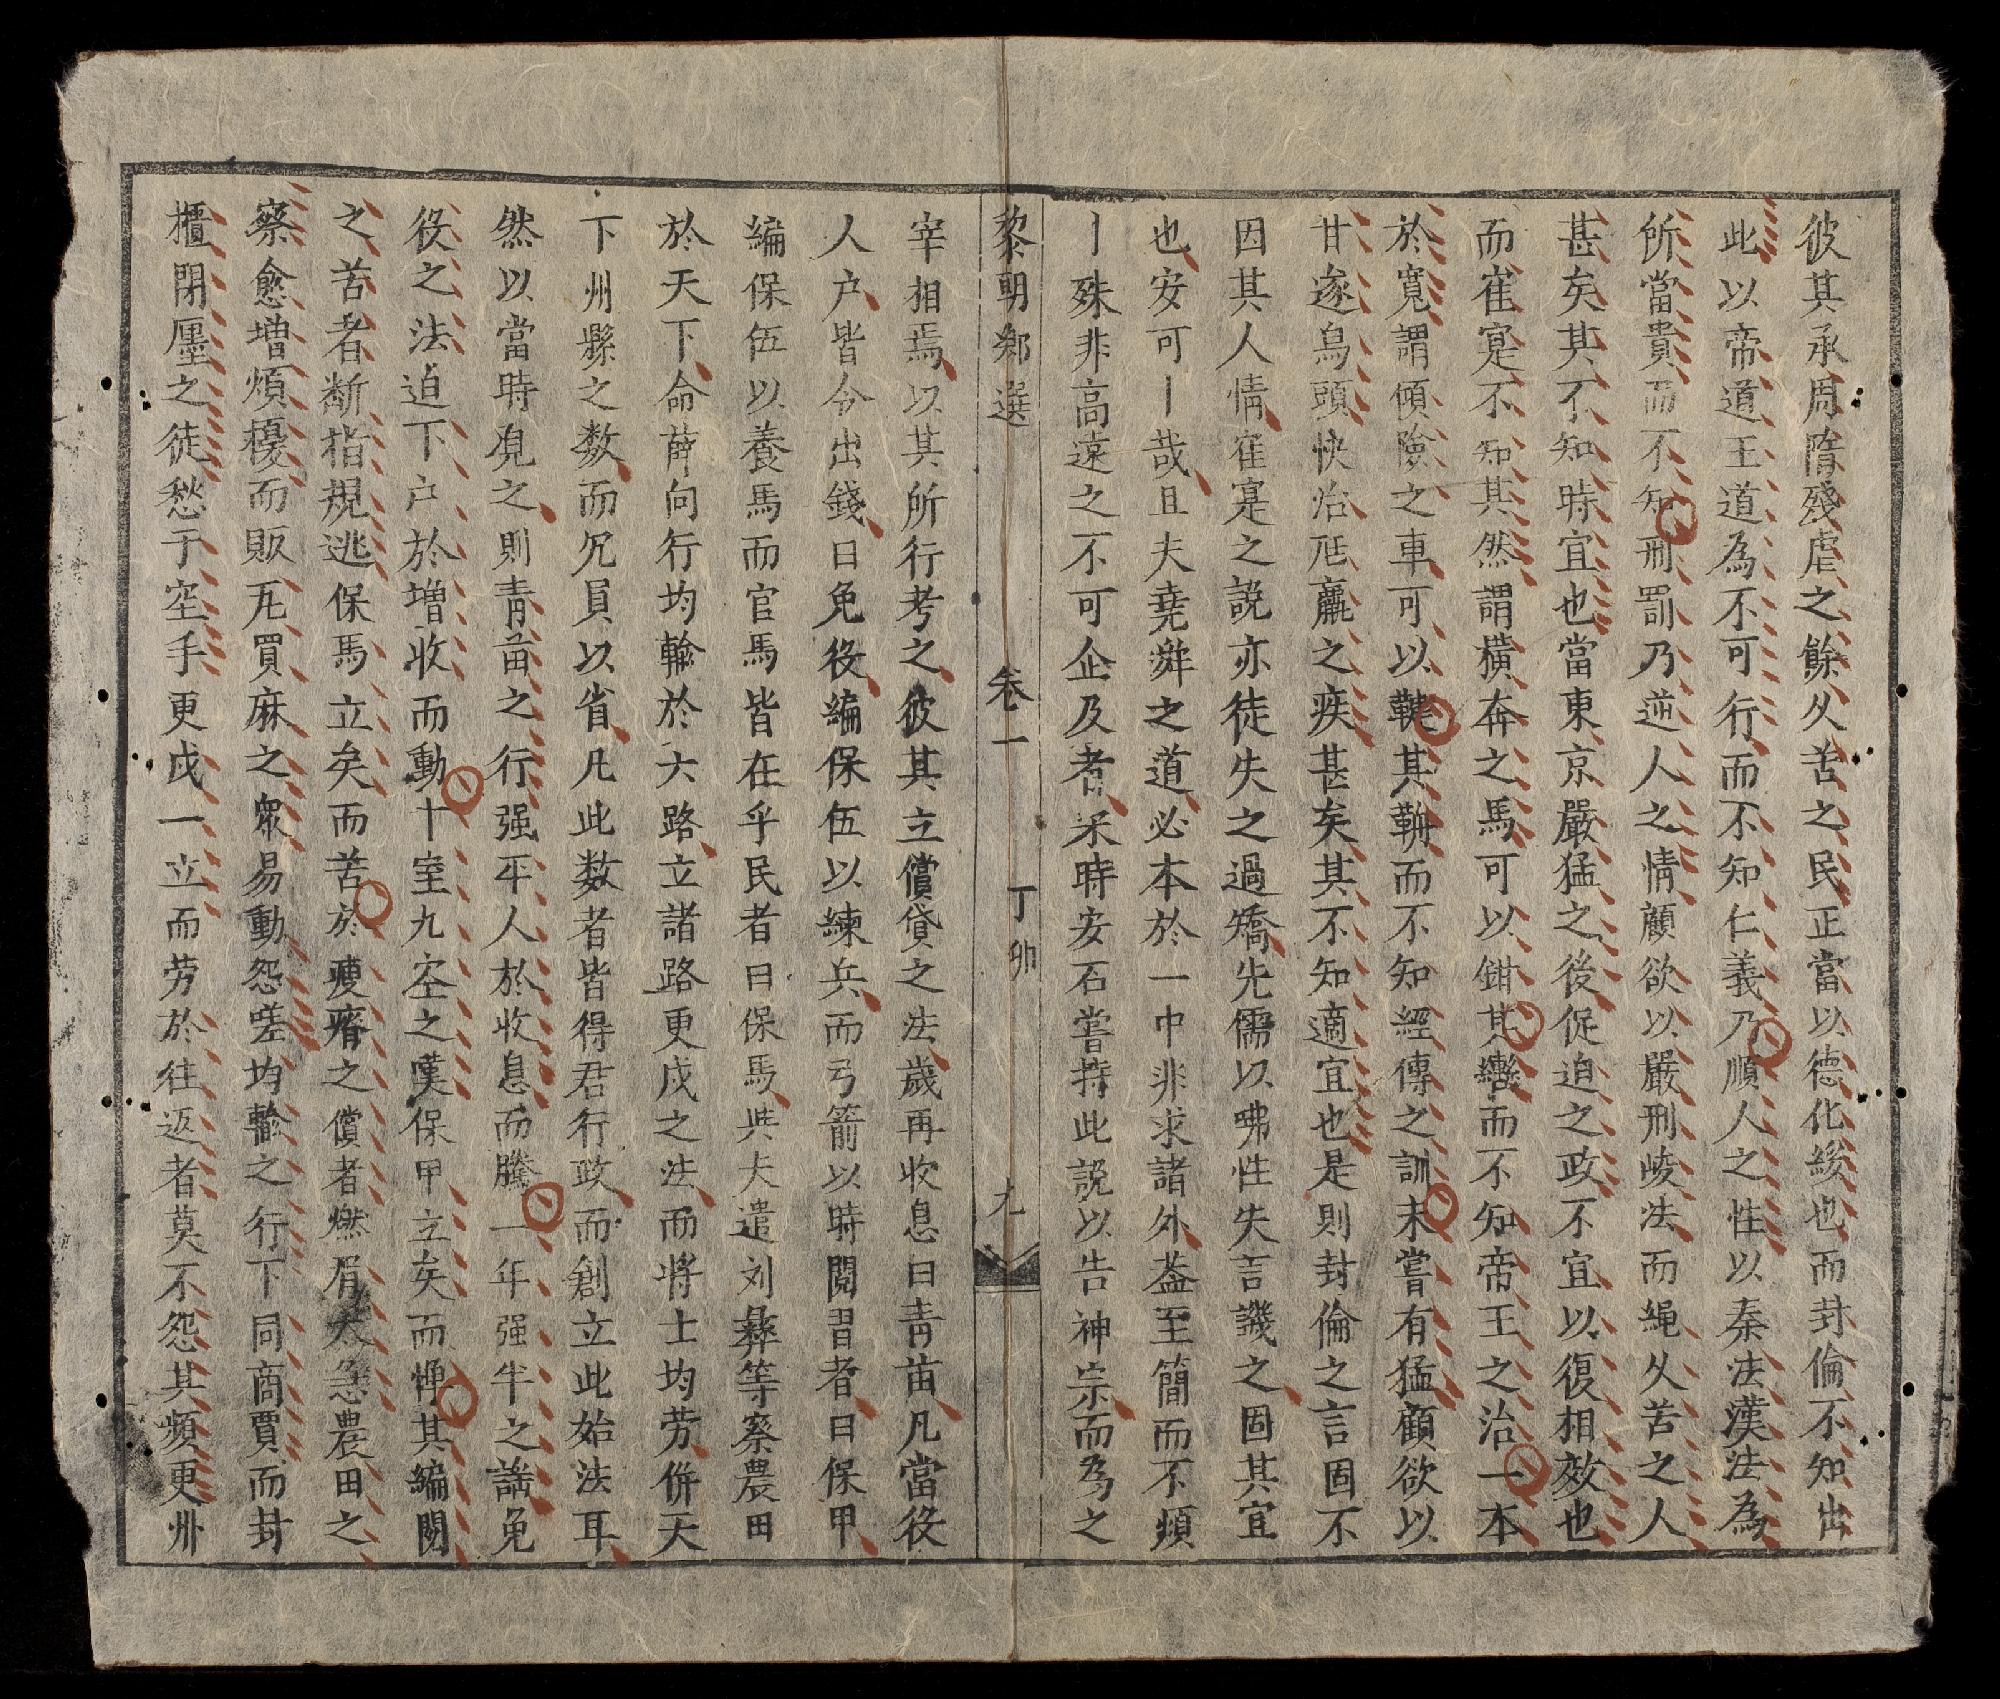 彼其承周隋殘虐之餘久苦之民正當以德化綏也而封倫不知出
此以帝道王道為不可行而不知仁義乃順人之性以秦法漢法為
所當貴而不知刑罰乃逆人之情顧欲以嚴刑峻法而繩久苦之人
甚矣其不知時宜也當東京嚴猛之後促迫之政不宜以復相效也
而崔寔不知其然謂橫奔之馬可以鉗其轡而不知帝王之治一本
於寬謂傾險之車可以鞬其鞘而不知經傳之訓未嘗有猛顧欲以
甘遂烏頭快治尫羸之疾甚矣其不知適宜也是則封倫之言固不
因其人情崔寔之說亦徒失之過矯先儒以咈性失言譏之固其宜
也安可丨哉且夫堯舜之道必本於一中非求諸外葢至簡而不煩
丨殊非高遠之不可企及者宋時安石嘗持此說以告神宗而為之
黎朝鄉選 卷一 丁卯 九
宰相焉以其所行考之彼其立償貸之法歲再收息曰青苗凡當役
人户皆令出錢曰免役編保伍以練兵而弓箭以時閱習者曰保甲
編保伍以養馬而官馬皆在乎民者曰保馬與夫遣刘彝等察農田
於天下命薛向行均輸於六路立諸路更戍之法而將士均劳併天
下州縣之数而冗員以省凡此数者皆得君行政而創立此始法耳
然以當時見之則青苗之行强平人於收息而騰一年强半之謠免
役之法迫下户於增收而動十室九空之嘆保甲立矣而憚其編閱
之苦者断指規逃保馬立矣而苦於瘦瘠之償者燃眉太急農田之
察愈增煩擾而販瓦買麻之眾易動怨嗟均輸之行下同商賈而封
櫃閉廛之徒愁于空手更戍一立而劳於往返者莫不怨其頻更州